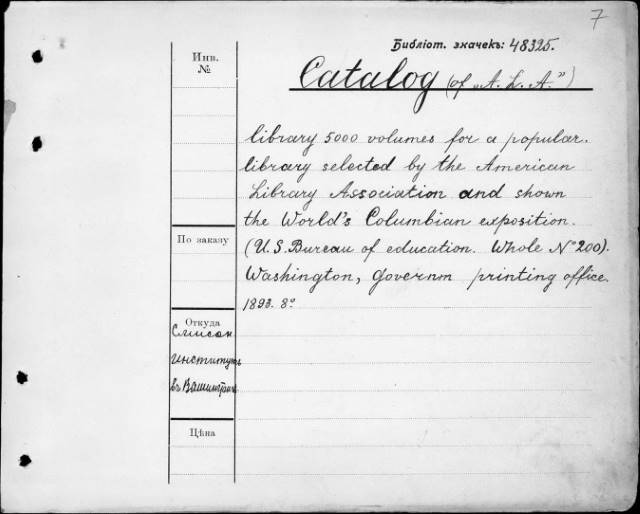 7
Библіот. значекъ: 48325.
Инв.
№
Catalog (of „A. L. A.")
library 5000 volumes for a popular.
library selected by the American
Library Association and shown
the World's Columbian exposition.
(U. S. Bureau of education. Whole N° 200).
Washington, governm printing office.
1893. 8°
По заказу
Откуда
Смисон.
институтъ
въ Вашингтонѣ
Цѣна